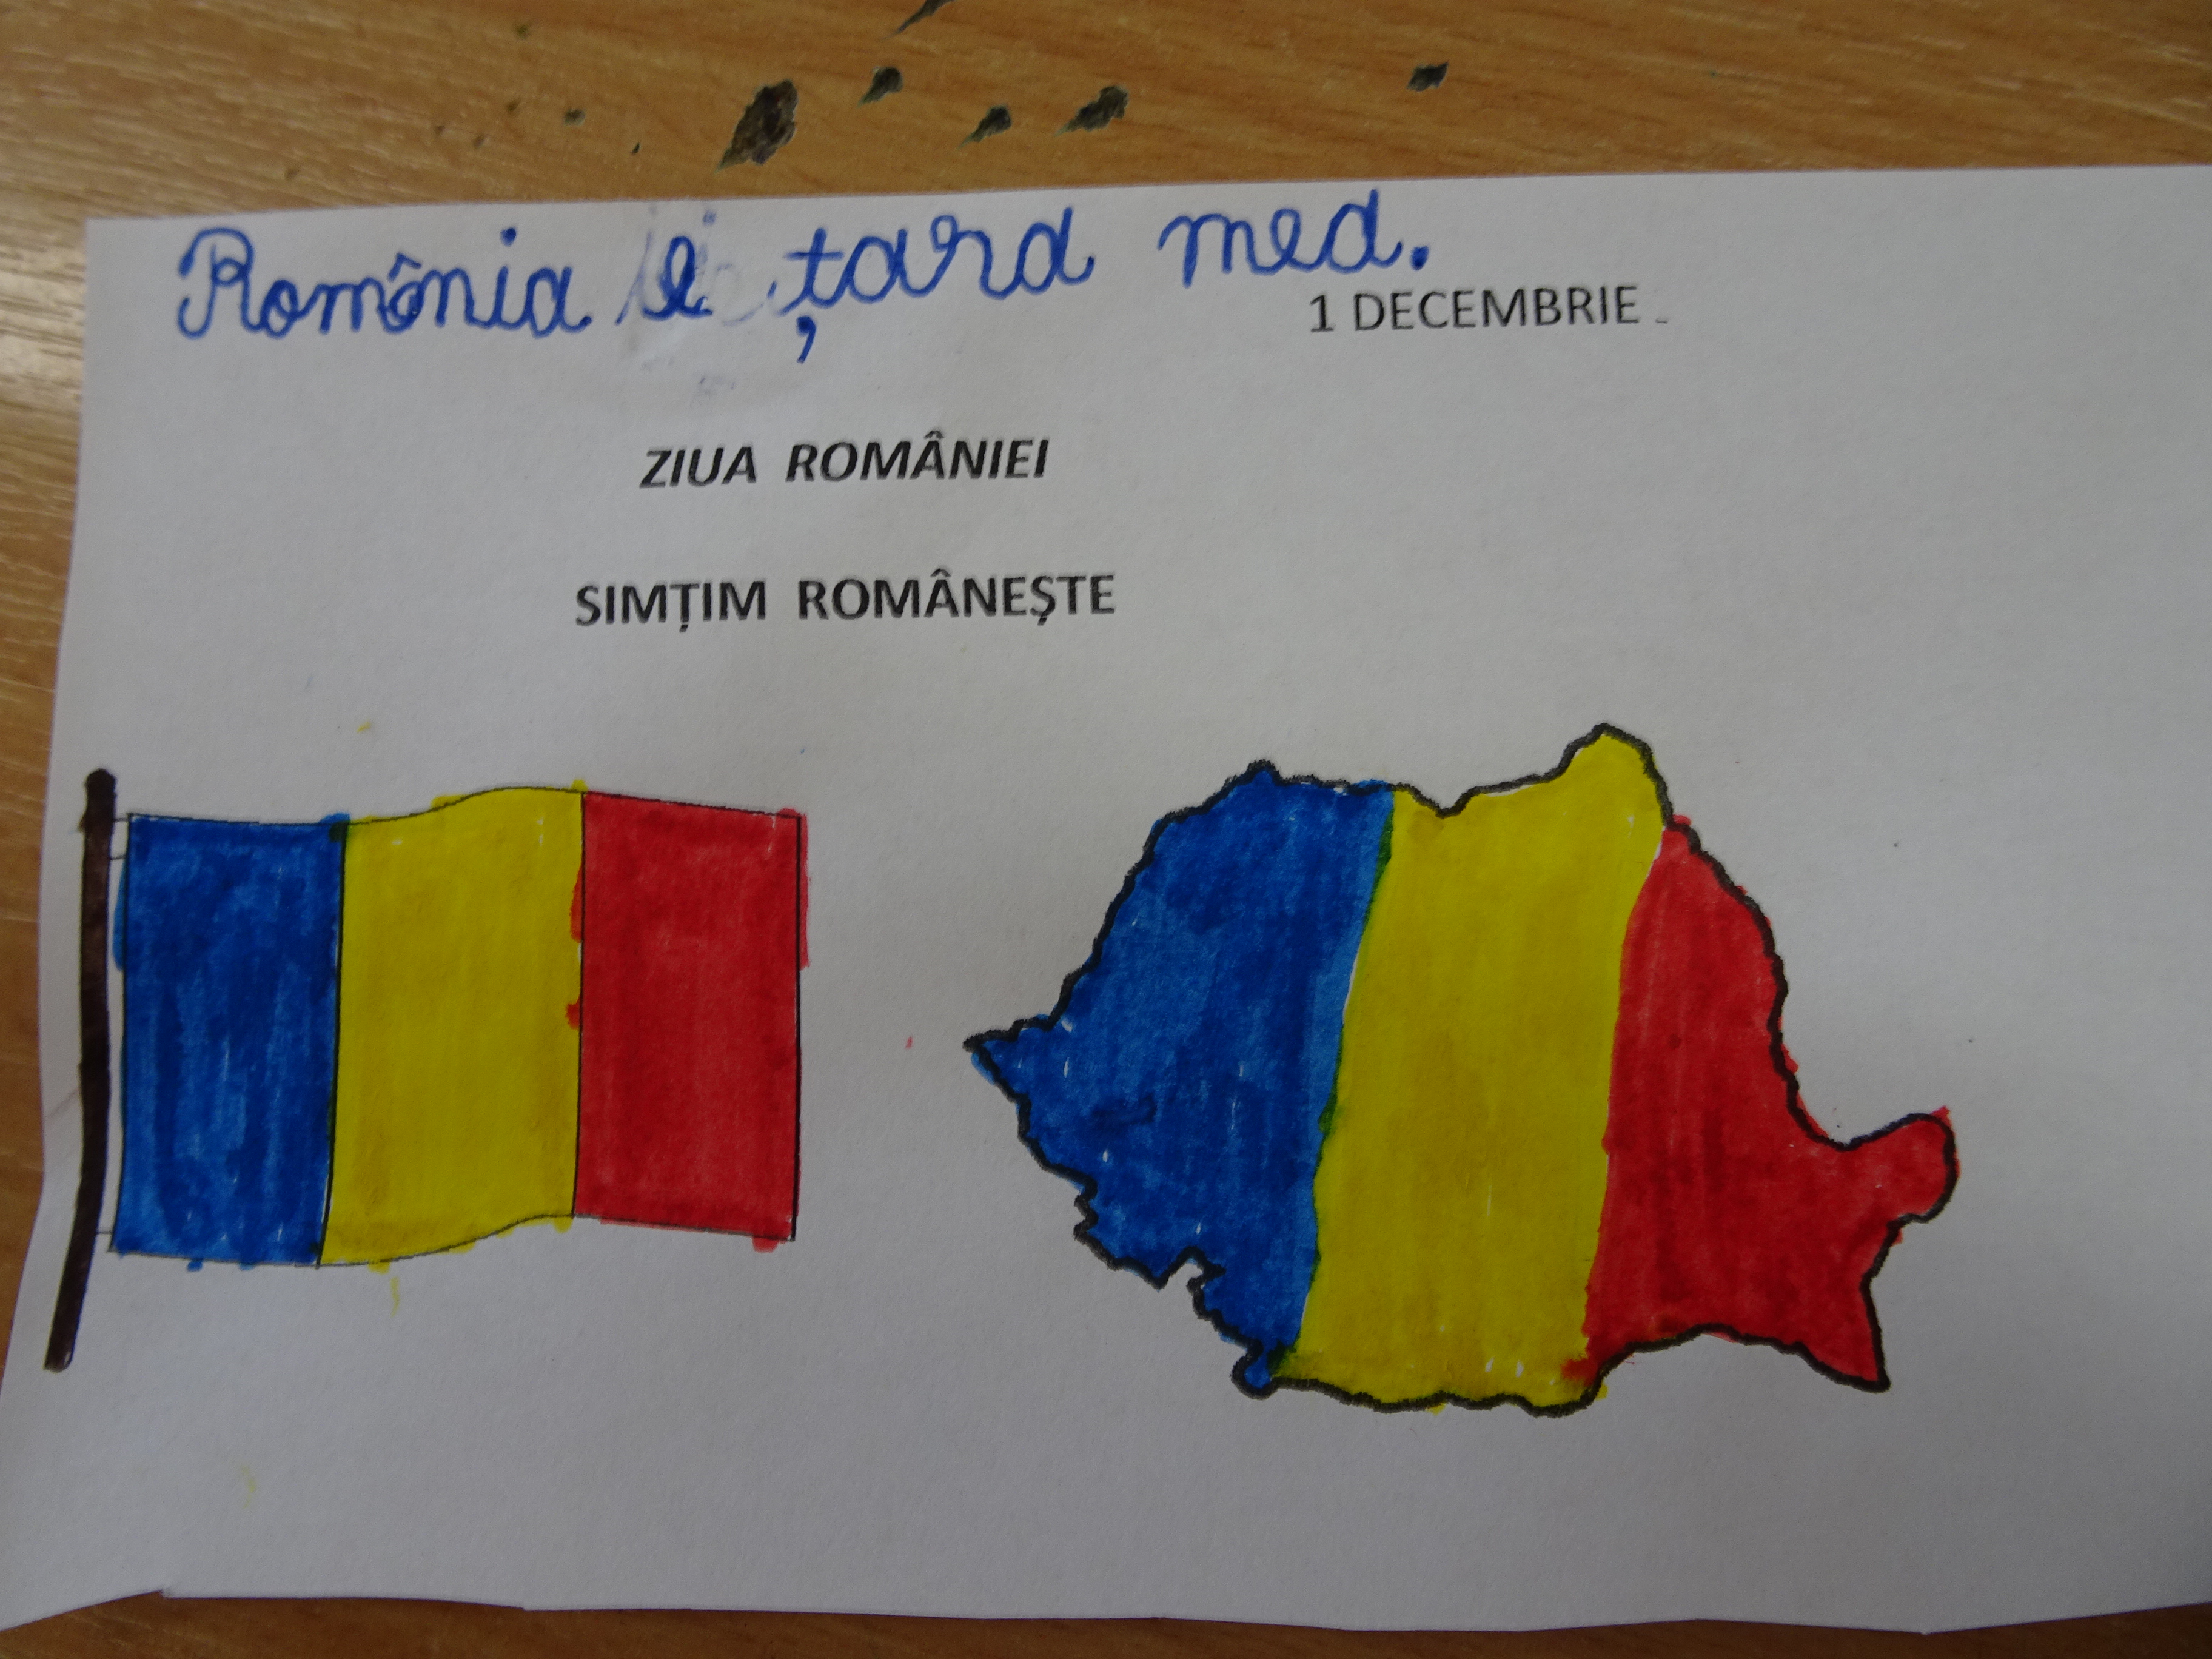 România e țara mea.
1 DECEMBRIE
ZIUA ROMÂNIEI
SIMȚIM ROMÂNEȘTE